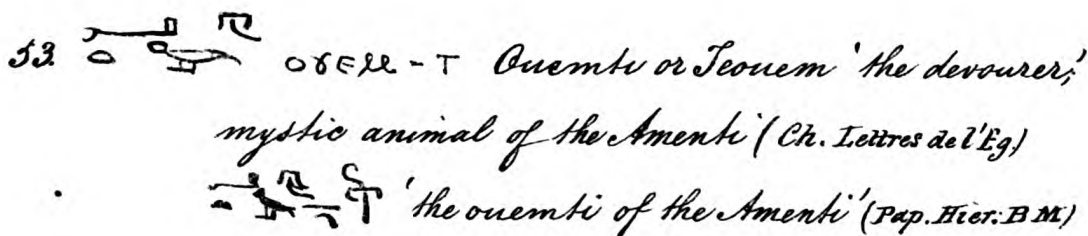 53. ⲟⲩⲉⲙ-ⲧ Ouemti or Teouem 'the devourer;'
mystic animal of the Amenti (Ch. Lettres de l'Eg.)
'the ouemti of the Amenti' (Pap. Hier. B M)